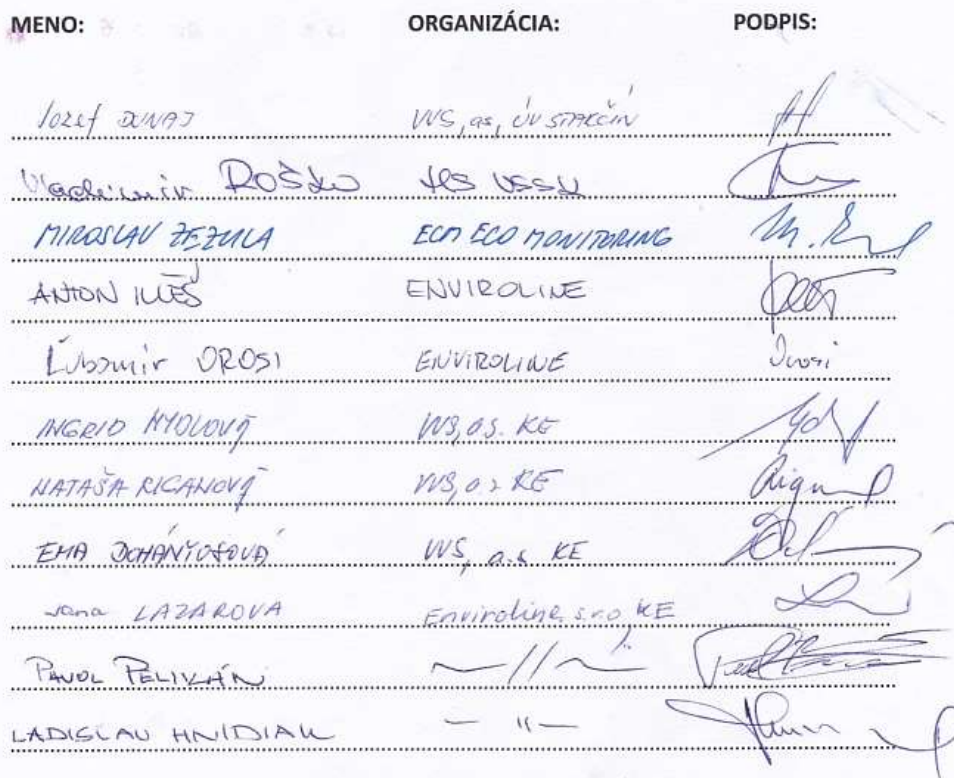 MENO: ORGANIZÁCIA: PODPIS:
Jozef DUNAJ VVS, as, ÚV STAKČÍN
Vladimir ROŠKO
MIROSLAV ZEZULA ECM ECO MONITORING
ANTON ILLÉŠ ENVIROLINE
Ľubomír OROSI ENVIROLINE Orosi
INGRID VVS, a.s. KE
NATAŠA RIGANOVÁ VVS, a.s KE
EMA VVS, a.s KE
Jana LAZAROVA Enviroline, s.r.o, KE
PAVOL PELIKÁN —//—
LADISLAV HNIDIAK — " —